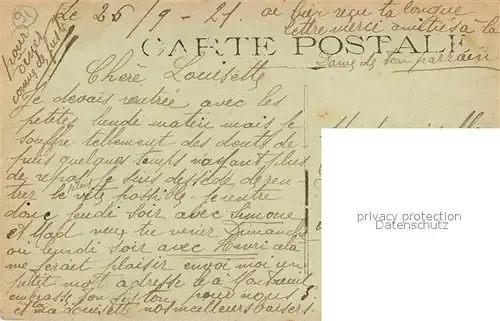 Le 26/9-21. ai bien reçu ta longue
lettre merci amitiés a ta
CARTE POSTALE
Dame de son parrain
pour
Chère Louisette
Je devais rentrée avec les
petites lundi matin mais je
souffre tellement des dents de
puis quelques temps n'ayant plus
de repos je suis dessidé de ren
trer le plus vite possible je rentre
donc jeudi soir avec Simone
et Mad veux tu venir Dimanche
ou lundi soir avec Henri cela
me ferait plaisir envoi moi un
petit mot adressé a Montreuil
embrasse ton pour nous
et ma Louisette nos meilleurs baisers.
privacy protection
Datenschutz